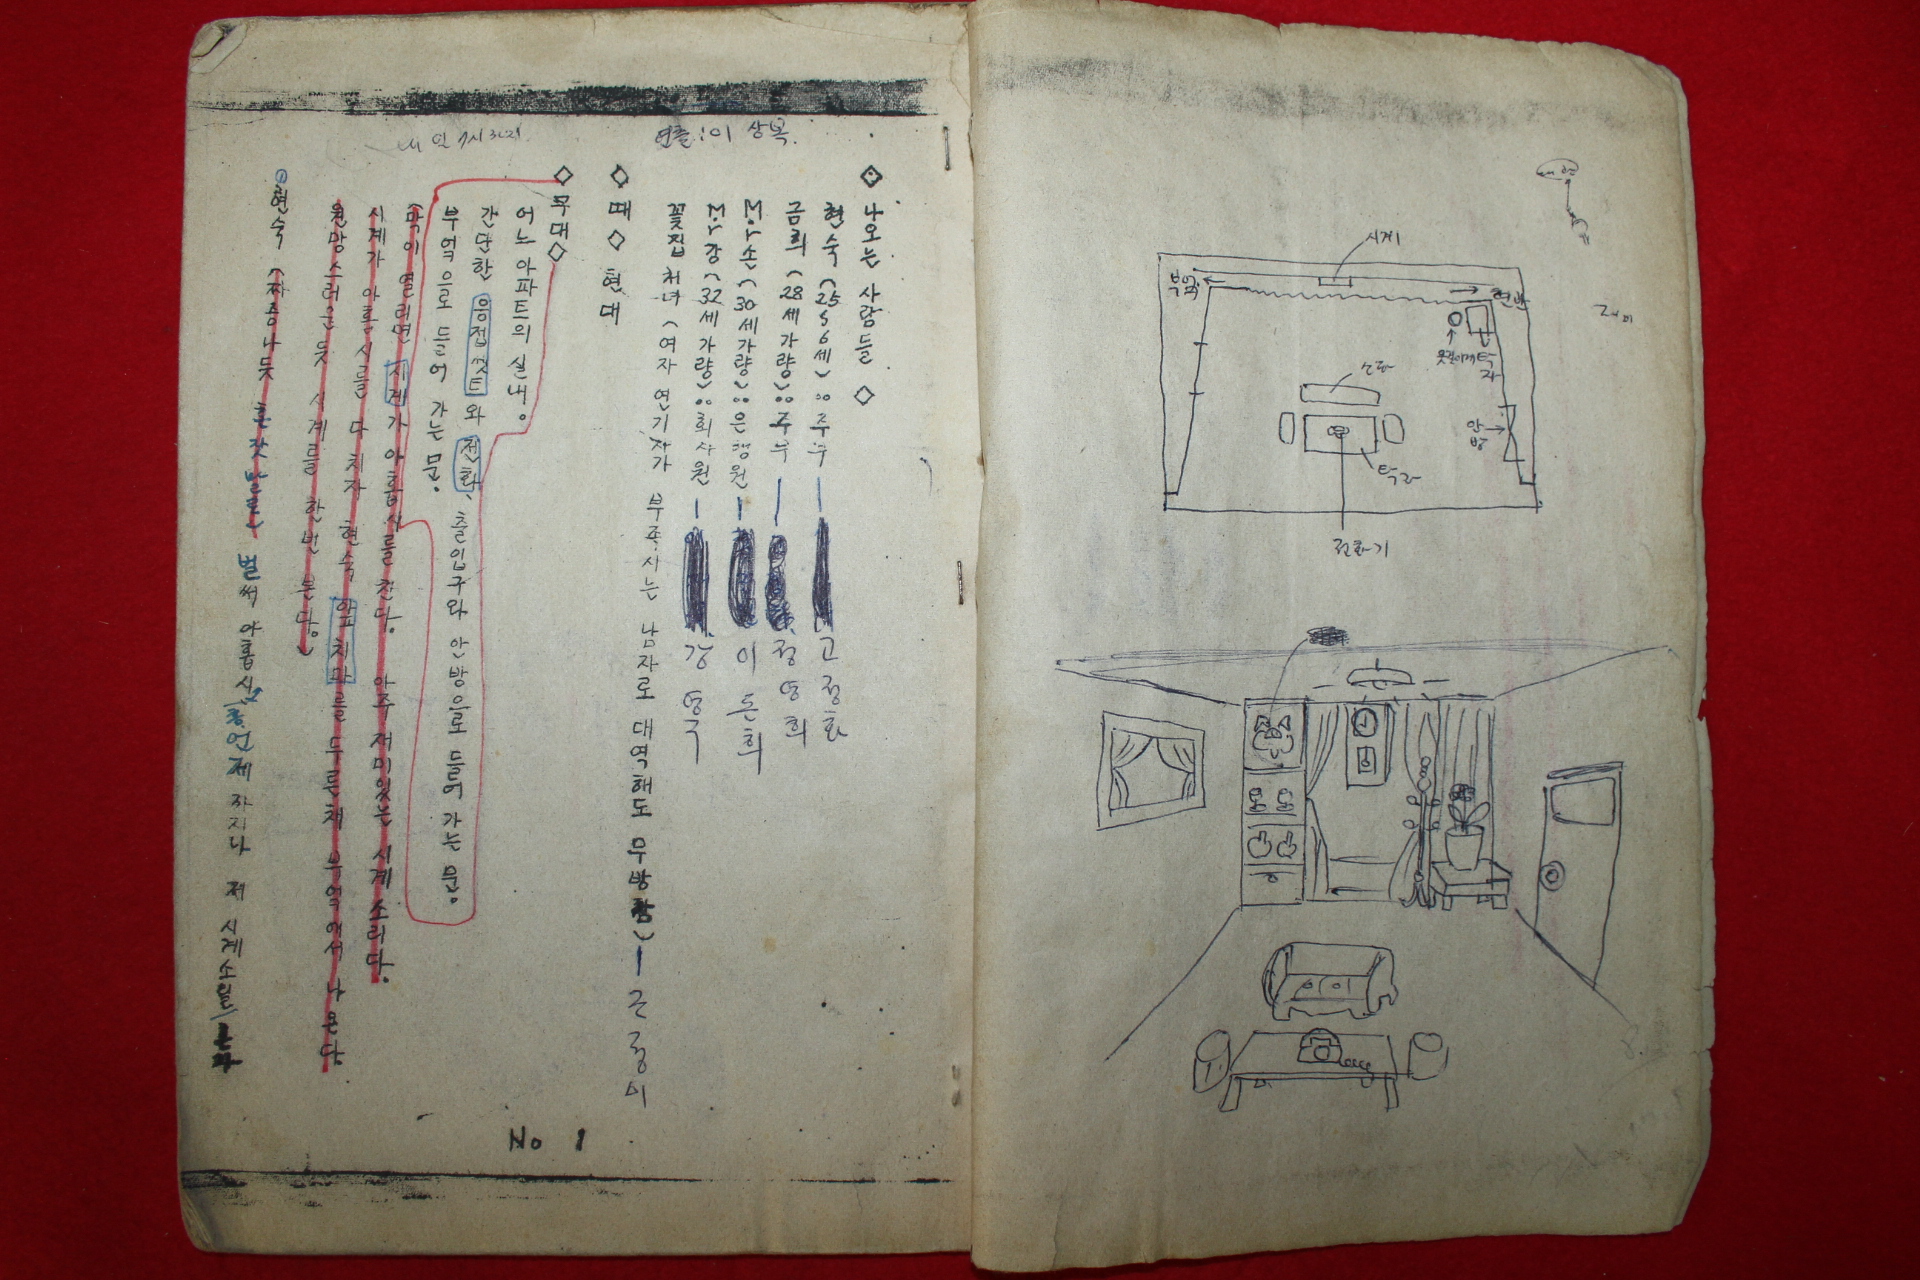 연출:이 상복
내일 7시30분
◇나오는 사람들 ◇
현숙 (25 5 6세) : 주부 ― 고정화
금희 (28세가량) : 주부 ― 정영희
Mr손 (30세가량) : 은행원 ― 이은희
Mr강 (32세가량) : 회사원 ― 강영국
꽃집 처녀 (여자 연기자가 부족시는 남자로 대역해도 무방함) ―
◇때◇ 현대
◇무대◇
어느 아파트의 실내。
간단한 응접셋트와 전화、출입구와 안방으로 들어 가는 문。
부엌으로 들어 가는 문.
(막이 열리면 시계가 아홉시를 친다. 아주 재미있는 시계 소리다.
시계가 아홉시를 다 치자 현숙 앞치마를 두른채 부엌에서 나온다
원망스러운 듯 시계를 한번 본다。)
현숙 (짜증나듯 벌써 아홉시 제 시계소릴
No 1
시계
부엌
현관
탁자
쇼파
안방
탁자
전화기